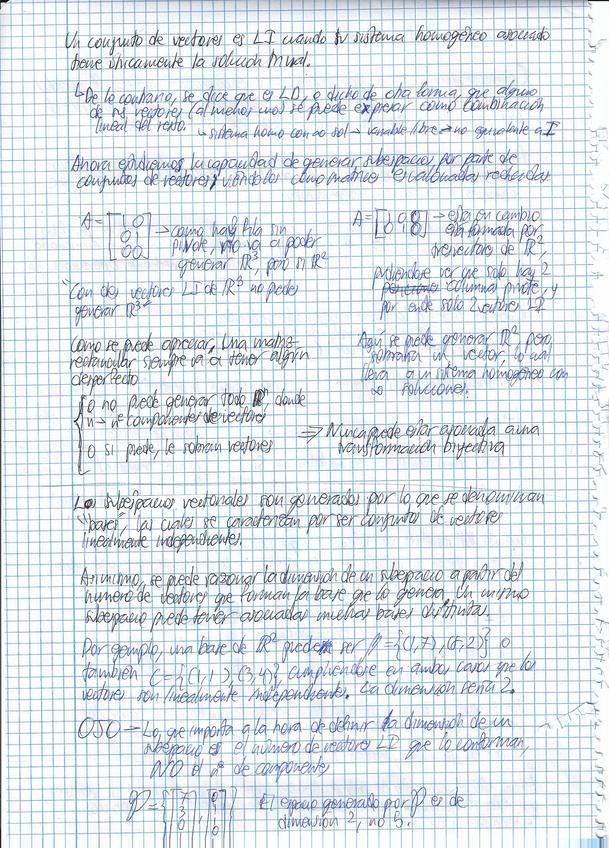 Un conjunto de vectores es LI cuando su sistema homogéneo asociado
tiene únicamente la solución trivial.
↳ De lo contrario, se dice que es LD, o dicho de otra forma, que alguno
de sus vectores (al menos uno) se puede expresar como combinación
lineal del resto. ↳ sistema homo con ∞ sol → variable libre → no equivalente a I
Ahora estudiaremos la capacidad de generar subespacios por parte de
conjuntos de vectores, viéndolos como matrices escalonadas reducidas
A = [1 0
0 1
0 0] → como hay fila sin
pivote, no va a poder
generar ℝ³, pero sí ℝ²
"Con dos vectores LI de ℝ³ no puedes
generar ℝ³"
A = [1 0 8
0 1 8] → esta en cambio
está formada por
tres vectores de ℝ²,
pudiéndose ver que solo hay 2
columnas pivote, y
por ende solo 2 vectores LI
Como se puede apreciar, una matriz
rectangular siempre va a tener algún
desperfecto
o no puede generar todo ℝⁿ, donde
n → nº componentes de vectores
o si puede, le sobran vectores
Aquí se puede generar ℝ², pero
sobraría un vector, lo cual
lleva a un sistema homogéneo con
∞ soluciones.
⇒ Nunca puede estar asociada a una
transformación biyectiva
Los subespacios vectoriales son generados por lo que se denominan
"bases", las cuales se caracterizan por ser conjuntos de vectores
linealmente independientes.
Asimismo, se puede razonar la dimensión de un subespacio a partir del
número de vectores que forman la base que lo genera. Un mismo
subespacio puede tener asociadas muchas bases distintas.
Por ejemplo, una base de ℝ² puede ser = {(1,7), (5,2)} o
también C = {(1,1), (3,4)}, cumpliéndose en ambos casos que los
vectores son linealmente independientes. La dimensión sería 2.
OJO → Lo que importa a la hora de definir la dimensión de un
subespacio es el número de vectores LI que lo conforman,
NO el nº de componentes
El espacio generado por P es de
dimensión 2, no 3.